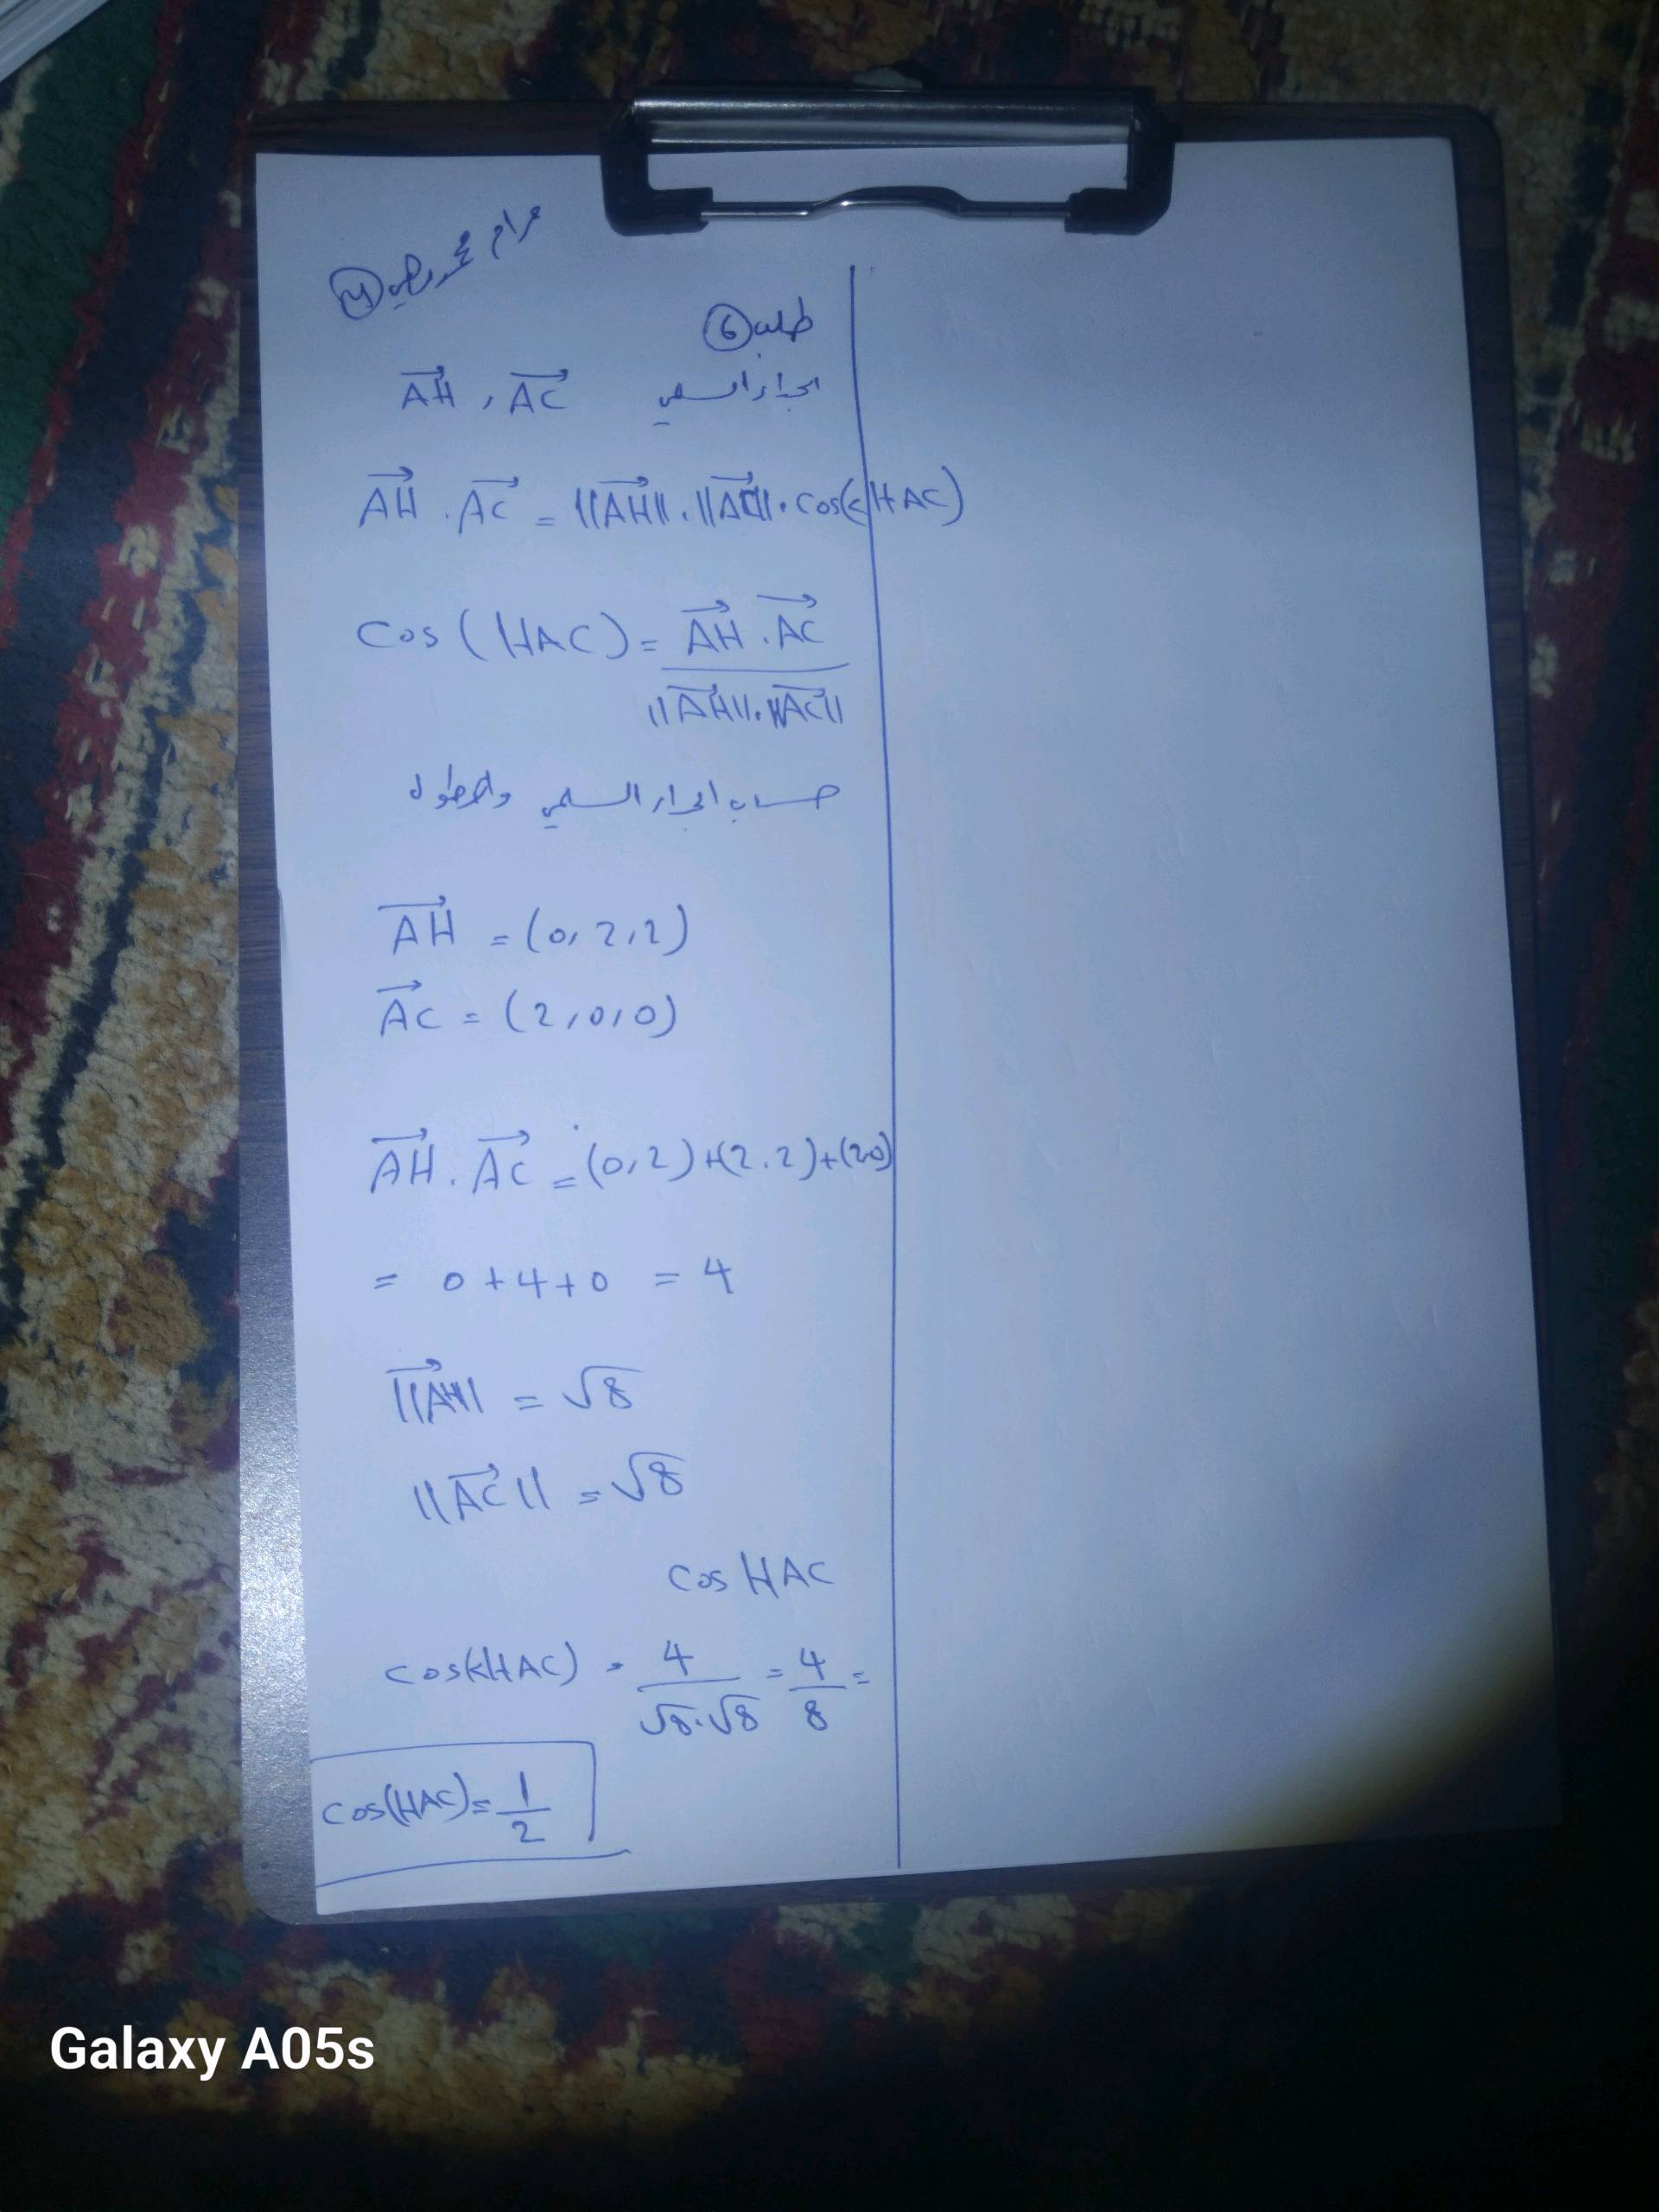 مرام محمد
طلب ⑥
الجداء السلمي AH , AC
AH . AC = ||AH|| . ||AC|| . cos(<HAC)
cos (HAC) = AH . AC
||AH|| . ||AC||
حساب الجداء السلمي والطول
AH = (0, 2, 2)
AC = (2, 0, 0)
AH . AC = (0, 2) + (2 . 2) + (2.0)
= 0 + 4 + 0 = 4
||AH|| = √8
||AC|| = √8
cos HAC
cos(<HAC) = 4 / √8 . √8 = 4 / 8 =
cos(HAC) = 1 / 2
Galaxy A05s